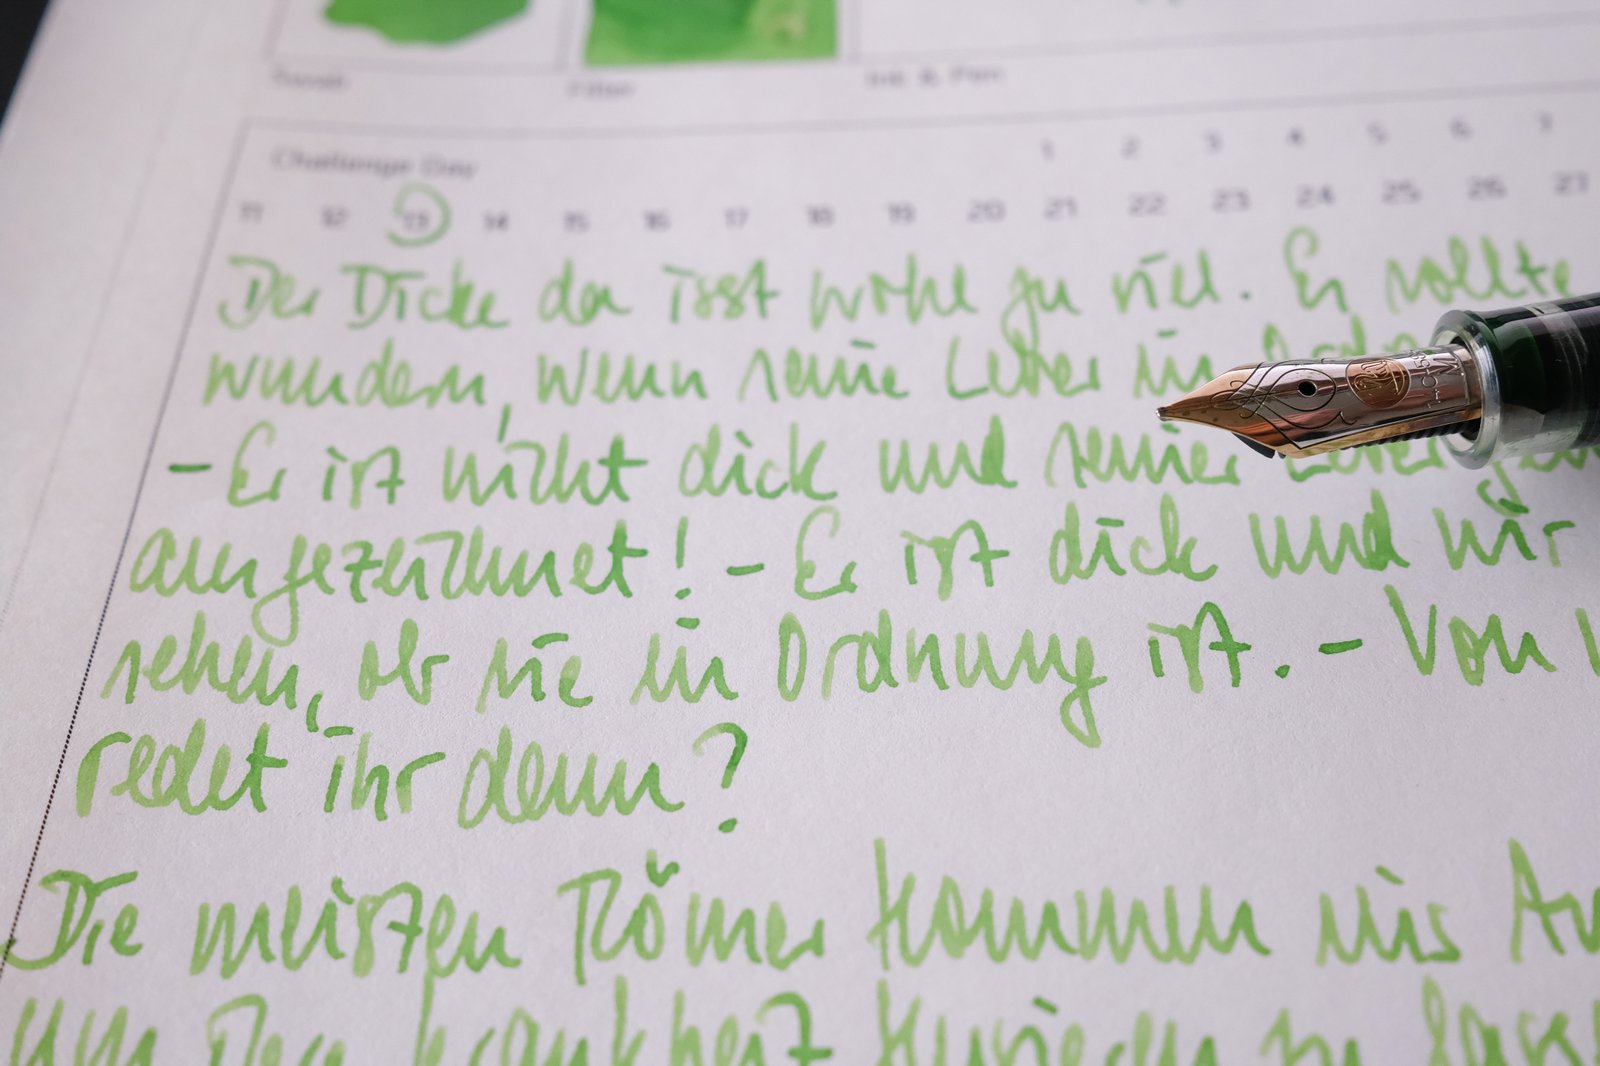 Swab Filter Ink & Pen
Challenge Day 1 2 3 4 5 6 7
11 12 13 14 15 16 17 18 19 20 21 22 23 24 25 26 27
Der Dicke da isst wohl zu viel. Er sollte
wundern, wenn seine Leber in
- Er ist nicht dick und seiner Leber
ausgezeichnet! - Er ist dick und wir
sehen, ob sie in Ordnung ist. - Von
redet ihr denn?
Die meisten Römer kommen ins
um Ihre Krankheit kurieren zu